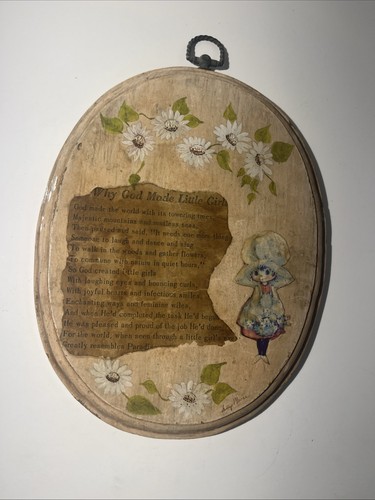 Why God Made Little Girls
God made the world with its towering trees
Majestic mountains and restless seas,
Then paused and said, "It needs one more thing
Someone to laugh and dance and sing
To walk in the woods and gather flowers
To commune with nature in quiet hours."
So God created little girls
With laughing eyes and bouncing curls,
With joyful hearts and infectious smiles
Enchanting ways and feminine wiles,
And when He'd completed the task He'd begun
He was pleased and proud of the job He'd done,
For the world, when seen through a little girl's
Greatly resembles Paradise